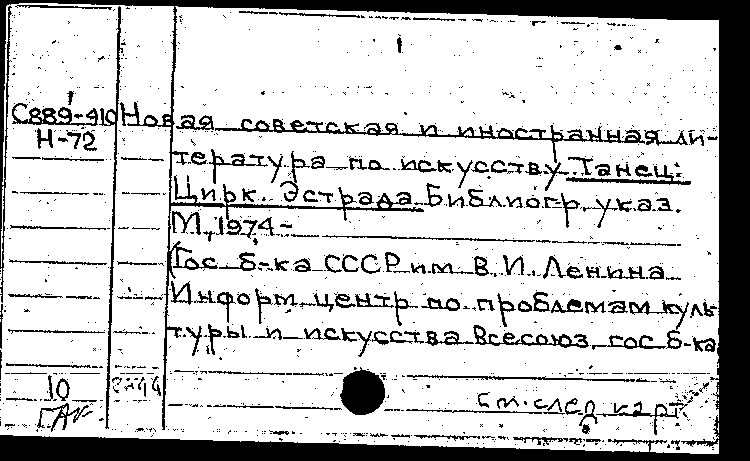 С889-910 Новая советская и иностранная ли-
Н-72 тература по искусству. Танец:
Цирк. Эстрада. Библиогр. указ.
М., 1974-
(Гос б-ка СССР им. В.И. Ленина
Информ. центр по проблемам куль
туры и искусства Всесоюз. гос б-ка
10
См. след карт.